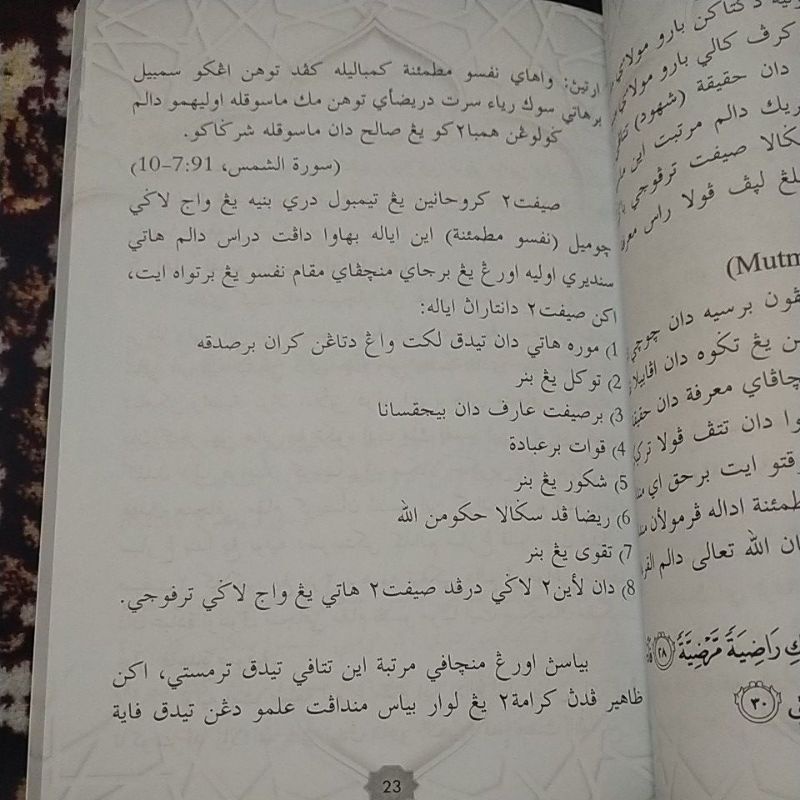 ارتيڽ: واهاي نفسو مطمئنة كمباليله كڤد توهن اڠكو سمبيل
برهاتي سوك رياء سرت دريضأي توهن مك ماسوقله اوليهمو دالم
ݢولوڠن همبا٢كو يڠ صالح دان ماسوقله شرݢاكو.
(سورة الشمس، 7:91–10)
صيفت٢ كروحانين يڠ تيمبول دري بنيه يڠ واج لاݢي
چوميل (نفسو مطمئنة) اين اياله بهاوا داڤت دراس دالم هاتي
سنديري اوليه اورڠ يڠ برجاي منچڤاي مقام نفسو يڠ برتواه ايت،
اكن صيفت٢ دانتاراڽ اياله:
1) موره هاتي دان تيدق لكت واڠ دتاڠن كران برصدقه
2) توكل يڠ بنر
3) برصيفت عارف دان بيجقسانا
4) قوات برعبادة
5) شكور يڠ بنر
6) ريضا ڤد سݢالا حكومن الله
7) تقوى يڠ بنر
8) دان لأين٢ لاݢي درڤد صيفت٢ هاتي يڠ واج لاݢي ترفوجي.
بياسڽ اورڠ منچافي مرتبة اين تتافي تيدق ترمستي، اكن
ظاهير ڤدڽ كرامة٢ يڠ لوار بياس منداڤت علمو دڠن تيدق فاية
23
دكتاكن بارو مولاءي
كرڤ كالي بارو مولاءي
دان حقيقة (شهود)
دالم مرتبت اين
سݢالا صيفت ترفوجي
لڤڤ ڤولا راس
(Mutm
برسيه دان چوچي
يڠ تݢوه دان اڤابيلا
معرفة دان
دان تتڤ ڤولا
وقتو ايت برحق
مطمئنة اداله ڤرمولأن
الله تعالى دالم
رَاضِيَةً مَّرْضِيَّةً ٢٨
٣٠